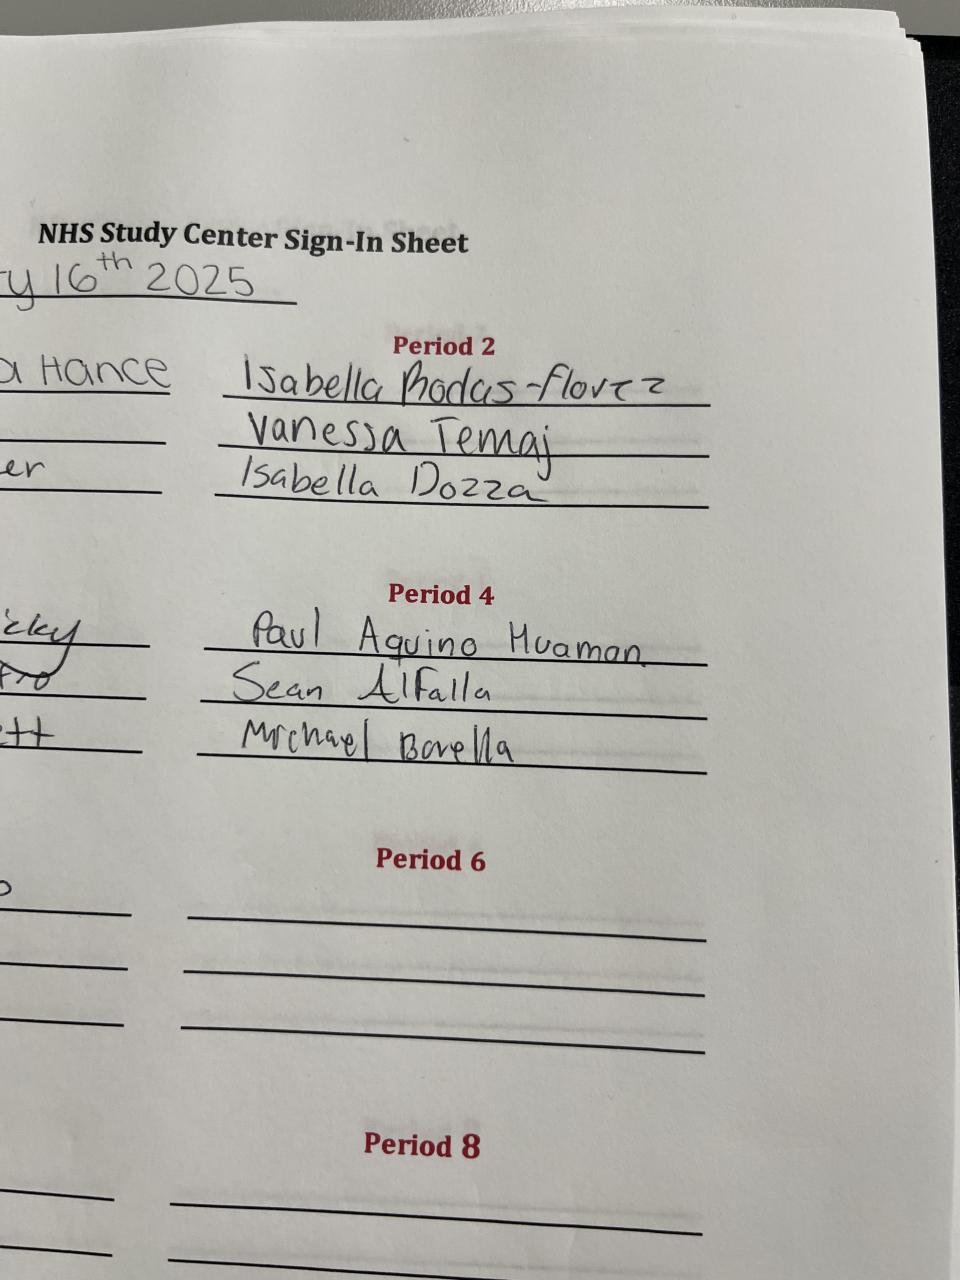 NHS Study Center Sign-In Sheet
y 16th 2025
Period 2
a Hance
Isabella Rodas-florez
Vanessa Temaj
er
Isabella Dozza
Period 4
icky
Paul Aquino Huaman
Sean AlFalla
ett
Michael Borella
Period 6
Period 8